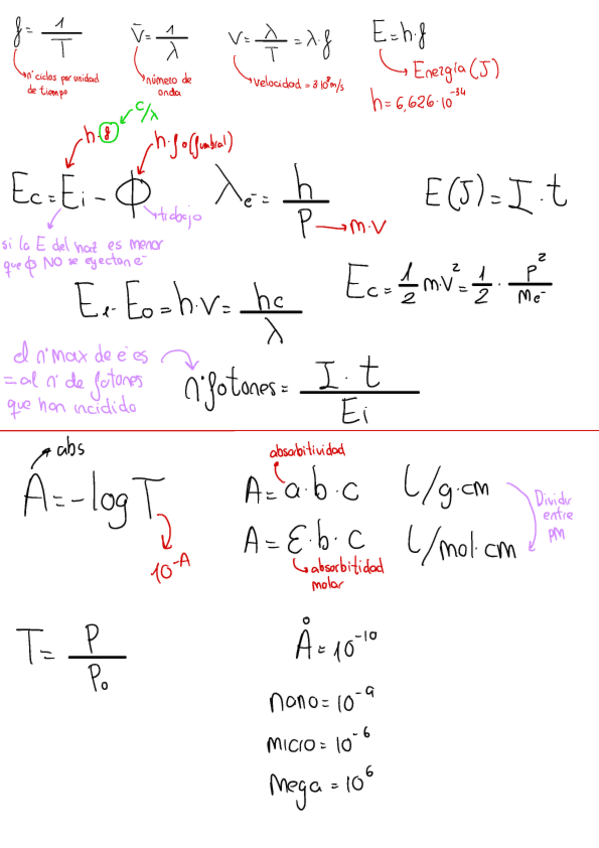 f = 1/T
nº ciclos por unidad
de tiempo
ν̄ = 1/λ
número de
onda
v = λ/T = λ·f
velocidad = 3·10⁸ m/s
E = h·f
Energía (J)
h = 6,626·10⁻³⁴
h·f
c/λ
h·f₀ (fumbral)
Ec = Ei − Φ
trabajo
si la E del haz es menor
que Φ NO se eyectan e⁻
λe⁻ = h/P
m·v
E (J) = I·t
E₁ - E₀ = h·v = hc/λ
Ec = 1/2 m·v² = 1/2 · p²/me⁻
el nº max de e⁻ es
= al nº de fotones
que han incidido
nº fotones = I·t/Ei
abs
A = -log T
10^-A
absorbitividad
A = a·b·c
l/g·cm
A = ε·b·c
l/mol·cm
absorbitidad
molar
Dividir
entre
PM
T = P/P₀
Å = 10⁻¹⁰
nano = 10⁻⁹
micro = 10⁻⁶
Mega = 10⁶